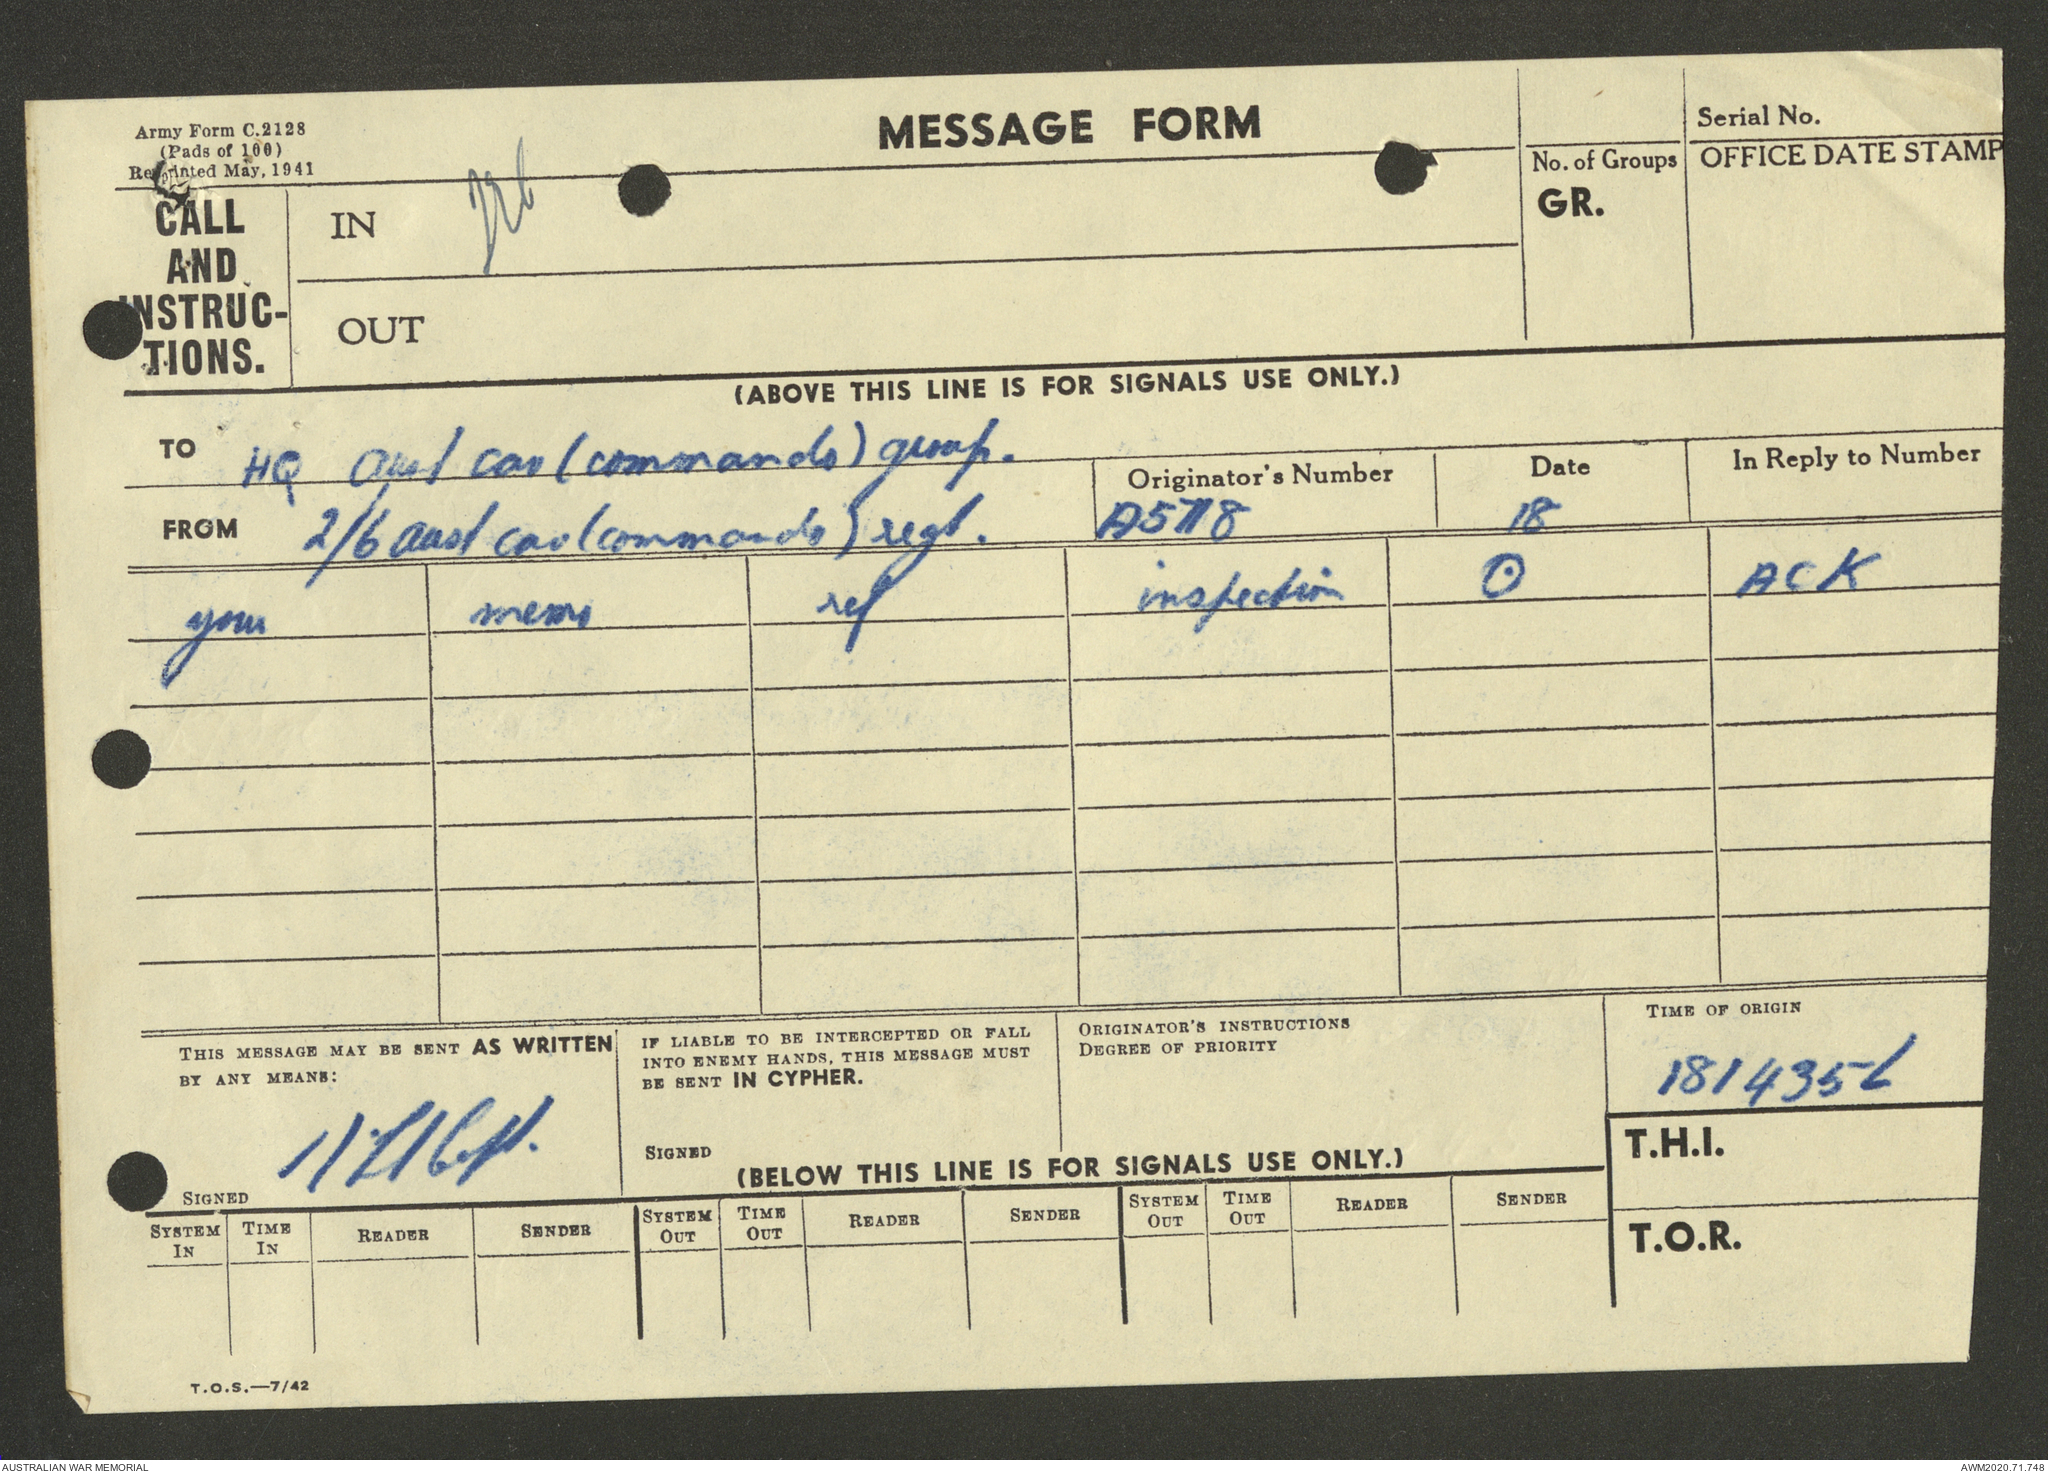 Army Form C.2128
(Pads of 100)
Reprinted May, 1941
MESSAGE FORM
CALL
AND
INSTRUC-
TIONS.
IN
OUT
No. of Groups
GR.
Serial No.
OFFICE DATE STAMP
(ABOVE THIS LINE IS FOR SIGNALS USE ONLY.)
TO HQ aust cav (commando) group.
FROM 2/6 aust cav (commando) regt.
Originator's Number
Date
In Reply to Number
18
your memo ref inspection ⊙ ACK
THIS MESSAGE MAY BE SENT AS WRITTEN
BY ANY MEANS:
Capt.
SIGNED
IF LIABLE TO BE INTERCEPTED OR FALL
INTO ENEMY HANDS, THIS MESSAGE MUST
BE SENT IN CYPHER.
SIGNED
ORIGINATOR'S INSTRUCTIONS
DEGREE OF PRIORITY
TIME OF ORIGIN
181435L
T.H.I.
T.O.R.
(BELOW THIS LINE IS FOR SIGNALS USE ONLY.)
SYSTEM IN TIME IN READER SENDER SYSTEM OUT TIME OUT READER SENDER SYSTEM OUT TIME OUT READER SENDER
T.O.S.—7/42
AUSTRALIAN WAR MEMORIAL
AWM2020.71.748